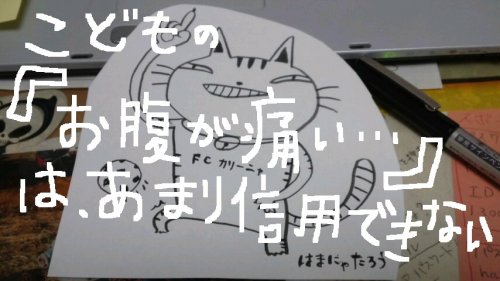 こどもの
『お腹が痛い…』
は、あまり信用できない
FC カリーニャ
はまにゃたろう
I.D
パスワード